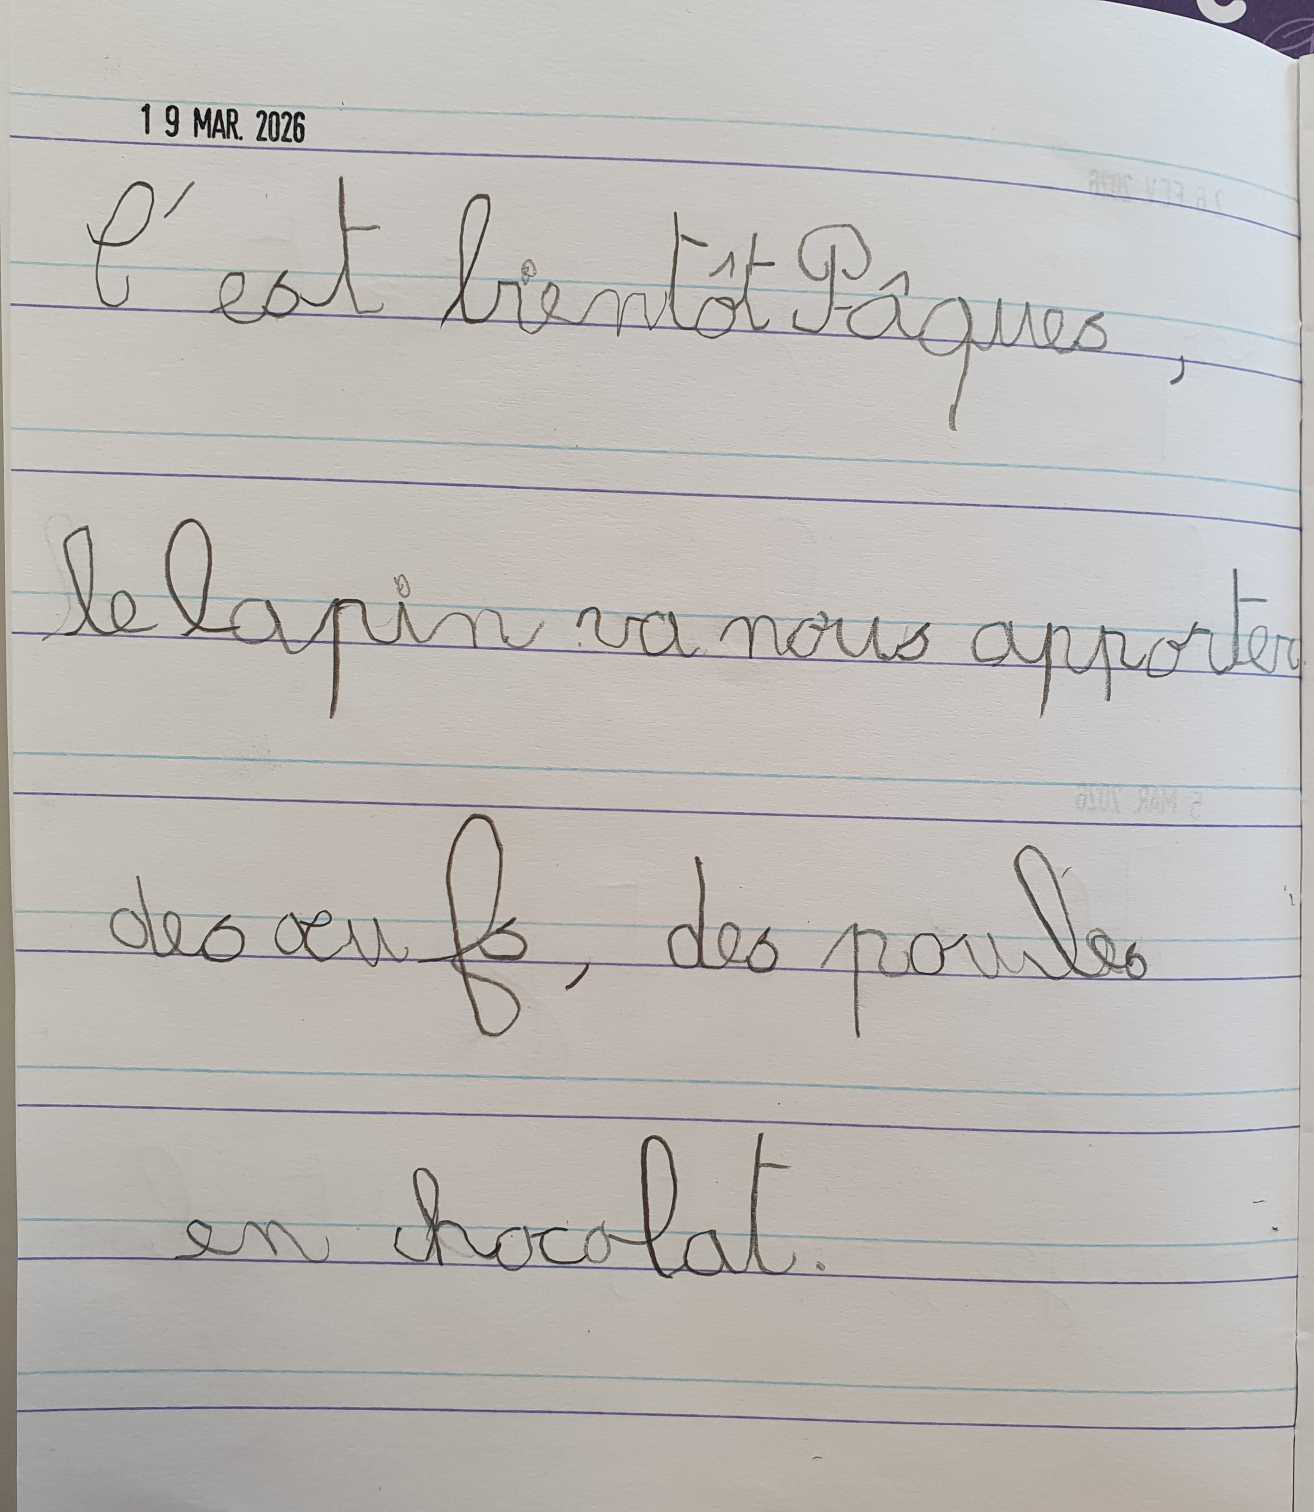 19 MAR. 2026
C'est bientôt Pâques,
le lapin va nous apporter
des oeufs, des poules
en chocolat.